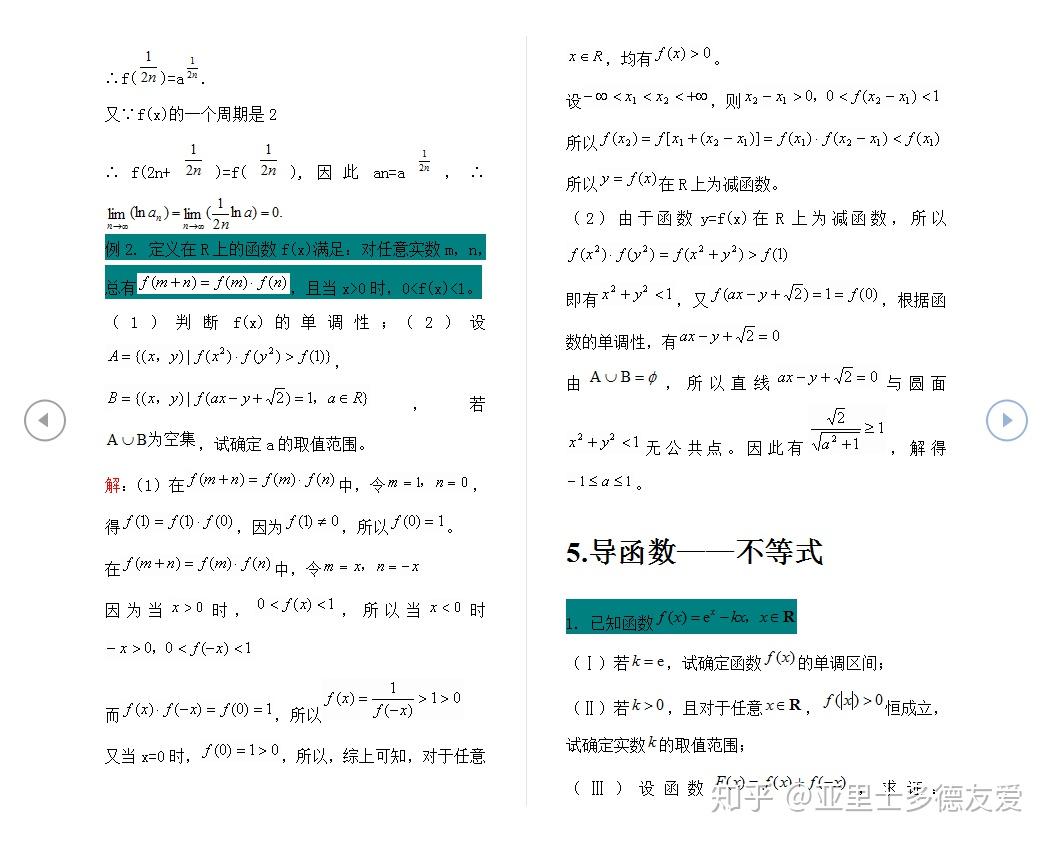 ∴f(1/2n)=a^{1/2n}.
又∵f(x)的一个周期是2
∴ f(2n+ 1/2n )=f( 1/2n ), 因此 an=a^{1/2n} , ∴
lim_{n→∞}(ln a_n)=lim_{n→∞}(1/2n ln a)=0.
例2. 定义在R上的函数f(x)满足：对任意实数m，n，
总有f(m+n)=f(m)·f(n)，且当x>0时，0<f(x)<1。
(1)判断f(x)的单调性；(2)设
A={(x，y)|f(x²)·f(y²)>f(1)}，
B={(x，y)|f(ax-y+√2)=1，a∈R} ， 若
A∪B为空集，试确定a的取值范围。
解：(1)在f(m+n)=f(m)·f(n)中，令m=1，n=0，
得f(1)=f(1)·f(0)，因为f(1)≠0，所以f(0)=1。
在f(m+n)=f(m)·f(n)中，令m=x，n=-x
因为当x>0时，0<f(x)<1，所以当x<0时
-x>0，0<f(-x)<1
而f(x)·f(-x)=f(0)=1，所以f(x)=1/f(-x)>1>0
又当x=0时，f(0)=1>0，所以，综上可知，对于任意
x∈R，均有f(x)>0。
设-∞<x₁<x₂<+∞，则x₂-x₁>0，0<f(x₂-x₁)<1
所以f(x₂)=f[x₁+(x₂-x₁)]=f(x₁)·f(x₂-x₁)<f(x₁)
所以y=f(x)在R上为减函数。
(2)由于函数y=f(x)在R上为减函数，所以
f(x²)·f(y²)=f(x²+y²)>f(1)
即有x²+y²<1，又f(ax-y+√2)=1=f(0)，根据函
数的单调性，有ax-y+√2=0
由A∪B=ϕ，所以直线ax-y+√2=0与圆面
x²+y²<1无公共点。因此有√2/√(a²+1)≥1，解得
-1≤a≤1。
5.导函数——不等式
1. 已知函数f(x)=eˣ-kx，x∈R
(Ⅰ)若k=e，试确定函数f(x)的单调区间；
(Ⅱ)若k>0，且对于任意x∈R，f(|x|)>0恒成立，
试确定实数k的取值范围；
(Ⅲ)设函数F(x)=f(x)+f(-x)，求证：
知乎 @亚里士多德友爱